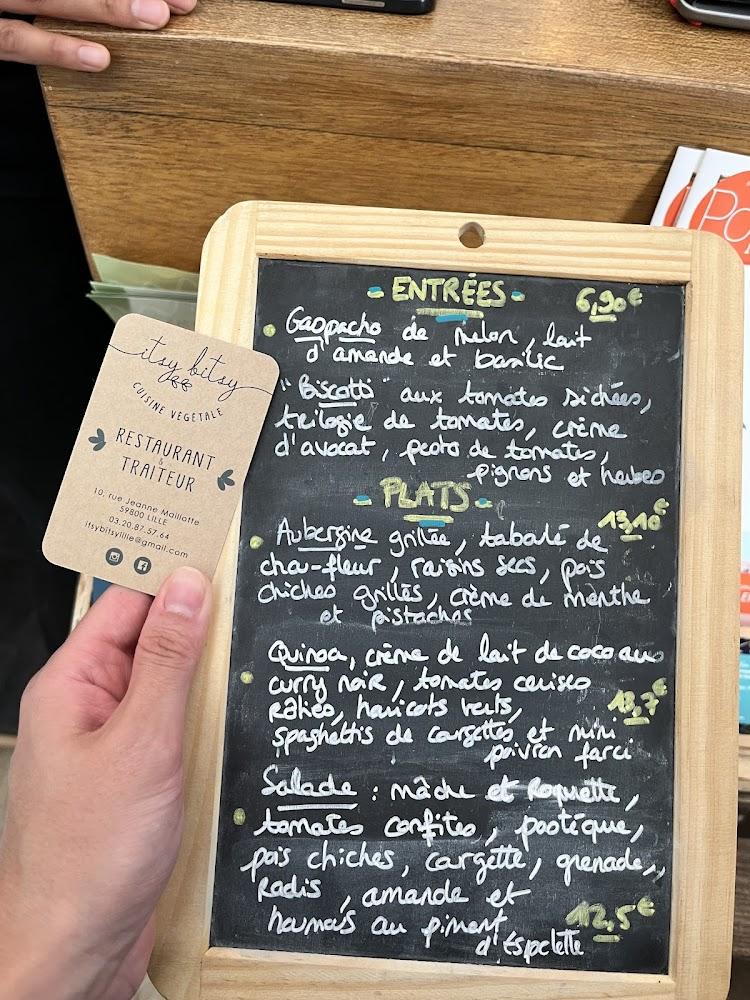 itsy bitsy
CUISINE VÉGÉTALE
RESTAURANT
&
TRAITEUR
10, rue Jeanne Maillotte
59800 LILLE
03.20.87.57.64
itsybitsylille@gmail.com
ENTRÉES 6,90€
Gaspacho de melon, lait
d'amande et basilic
"Biscotti" aux tomates séchées,
trilogie de tomates, crème
d'avocat, pesto de tomates,
pignons et herbes
PLATS
13,10€
Aubergine grillée, taboulé de
chou-fleur, raisins secs, pois
chiches grillés, crème de menthe
et pistaches
Quinoa, crème de lait de coco au
curry noir, tomates cerises
rôties, haricots verts, 13,7€
spaghettis de courgettes et mini
poivron farci
Salade : mâche et Roquette,
tomates confites, pastèque,
pois chiches, courgette, grenade,
Radis, amande et
houmous au piment 12,5€
d'Espelette
Po